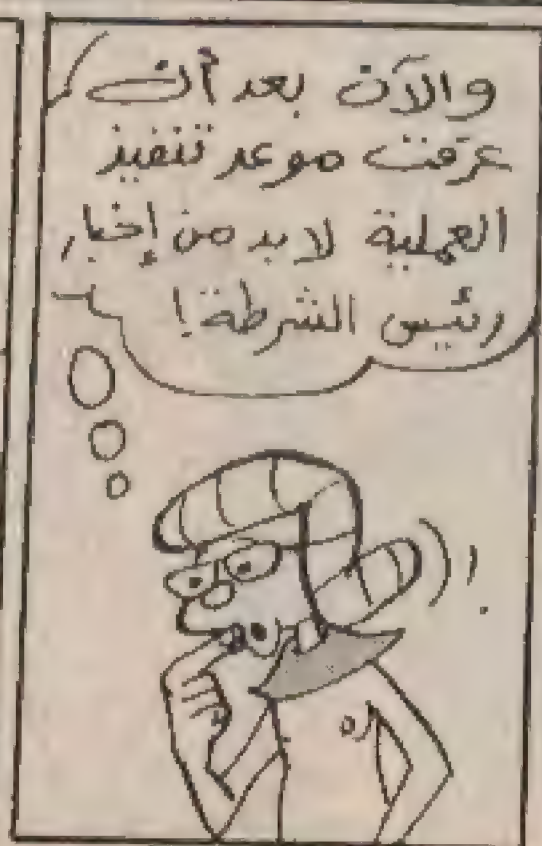 والآن بعد أن
عرفت موعد تنفيذ
العملية لا بد من إخبار
رئيس الشرطة!
!